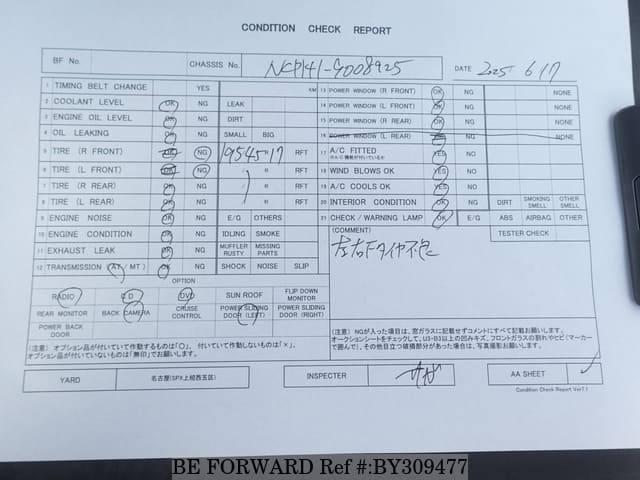 CONDITION CHECK REPORT
BF No. CHASSIS No. NCP141-9008925 DATE 2025 6/17
1 TIMING BELT CHANGE YES KM
2 COOLANT LEVEL OK NG LEAK
3 ENGINE OIL LEVEL OK NG DIRT
4 OIL LEAKING OK NG SMALL BIG
5 TIRE (R FRONT) OK NG 195 45-17 RFT
6 TIRE (L FRONT) OK NG 〃 RFT
7 TIRE (R REAR) OK NG RFT
8 TIRE (L REAR) OK NG RFT
9 ENGINE NOISE OK NG E/G OTHERS
10 ENGINE CONDITION OK NG IDLING SMOKE
11 EXHAUST LEAK OK NG MUFFLER RUSTY MISSING PARTS
12 TRANSMISSION (AT/MT) OK NG SHOCK NOISE SLIP
13 POWER WINDOW (R FRONT) OK NG NONE
14 POWER WINDOW (L FRONT) OK NG NONE
15 POWER WINDOW (R REAR) OK NG NONE
16 POWER WINDOW (L REAR) OK NG NONE
17 A/C FITTED YES NO
18 WIND BLOWS OK YES NO
19 A/C COOLS OK YES NO
20 INTERIOR CONDITION OK NG DIRT SMOKING SMELL OTHER SMELL
21 CHECK / WARNING LAMP OK E/G ABS AIRBAG OTHER
(COMMENT) TESTER CHECK
左右Fタイヤ不足
OPTION
RADIO CD DVD SUN ROOF FLIP DOWN MONITOR
REAR MONITOR BACK CAMERA CRUISE CONTROL POWER SLIDING DOOR (LEFT) POWER SLIDING DOOR (RIGHT)
POWER BACK DOOR
(注意) オプション品が付いていて作動するものは「○」、付いていて作動しないものは「×」、
オプション品が付いていないものは「無印」でお願いします。
(注意) NGが入った項目は、窓ガラスに記載せずコメントにすべて記載お願いします。
オークションシートをチェックして、U3・B3以上の凹みキズ、フロントガラスの割れやヒビ(マーカー
で囲んで)、その他目立つ破損部分があった場合は、写真撮影お願いします。
YARD 名古屋(SPX上組西五区) INSPECTER AA SHEET
Condition Check Report Ver7.1
BE FORWARD Ref #:BY309477